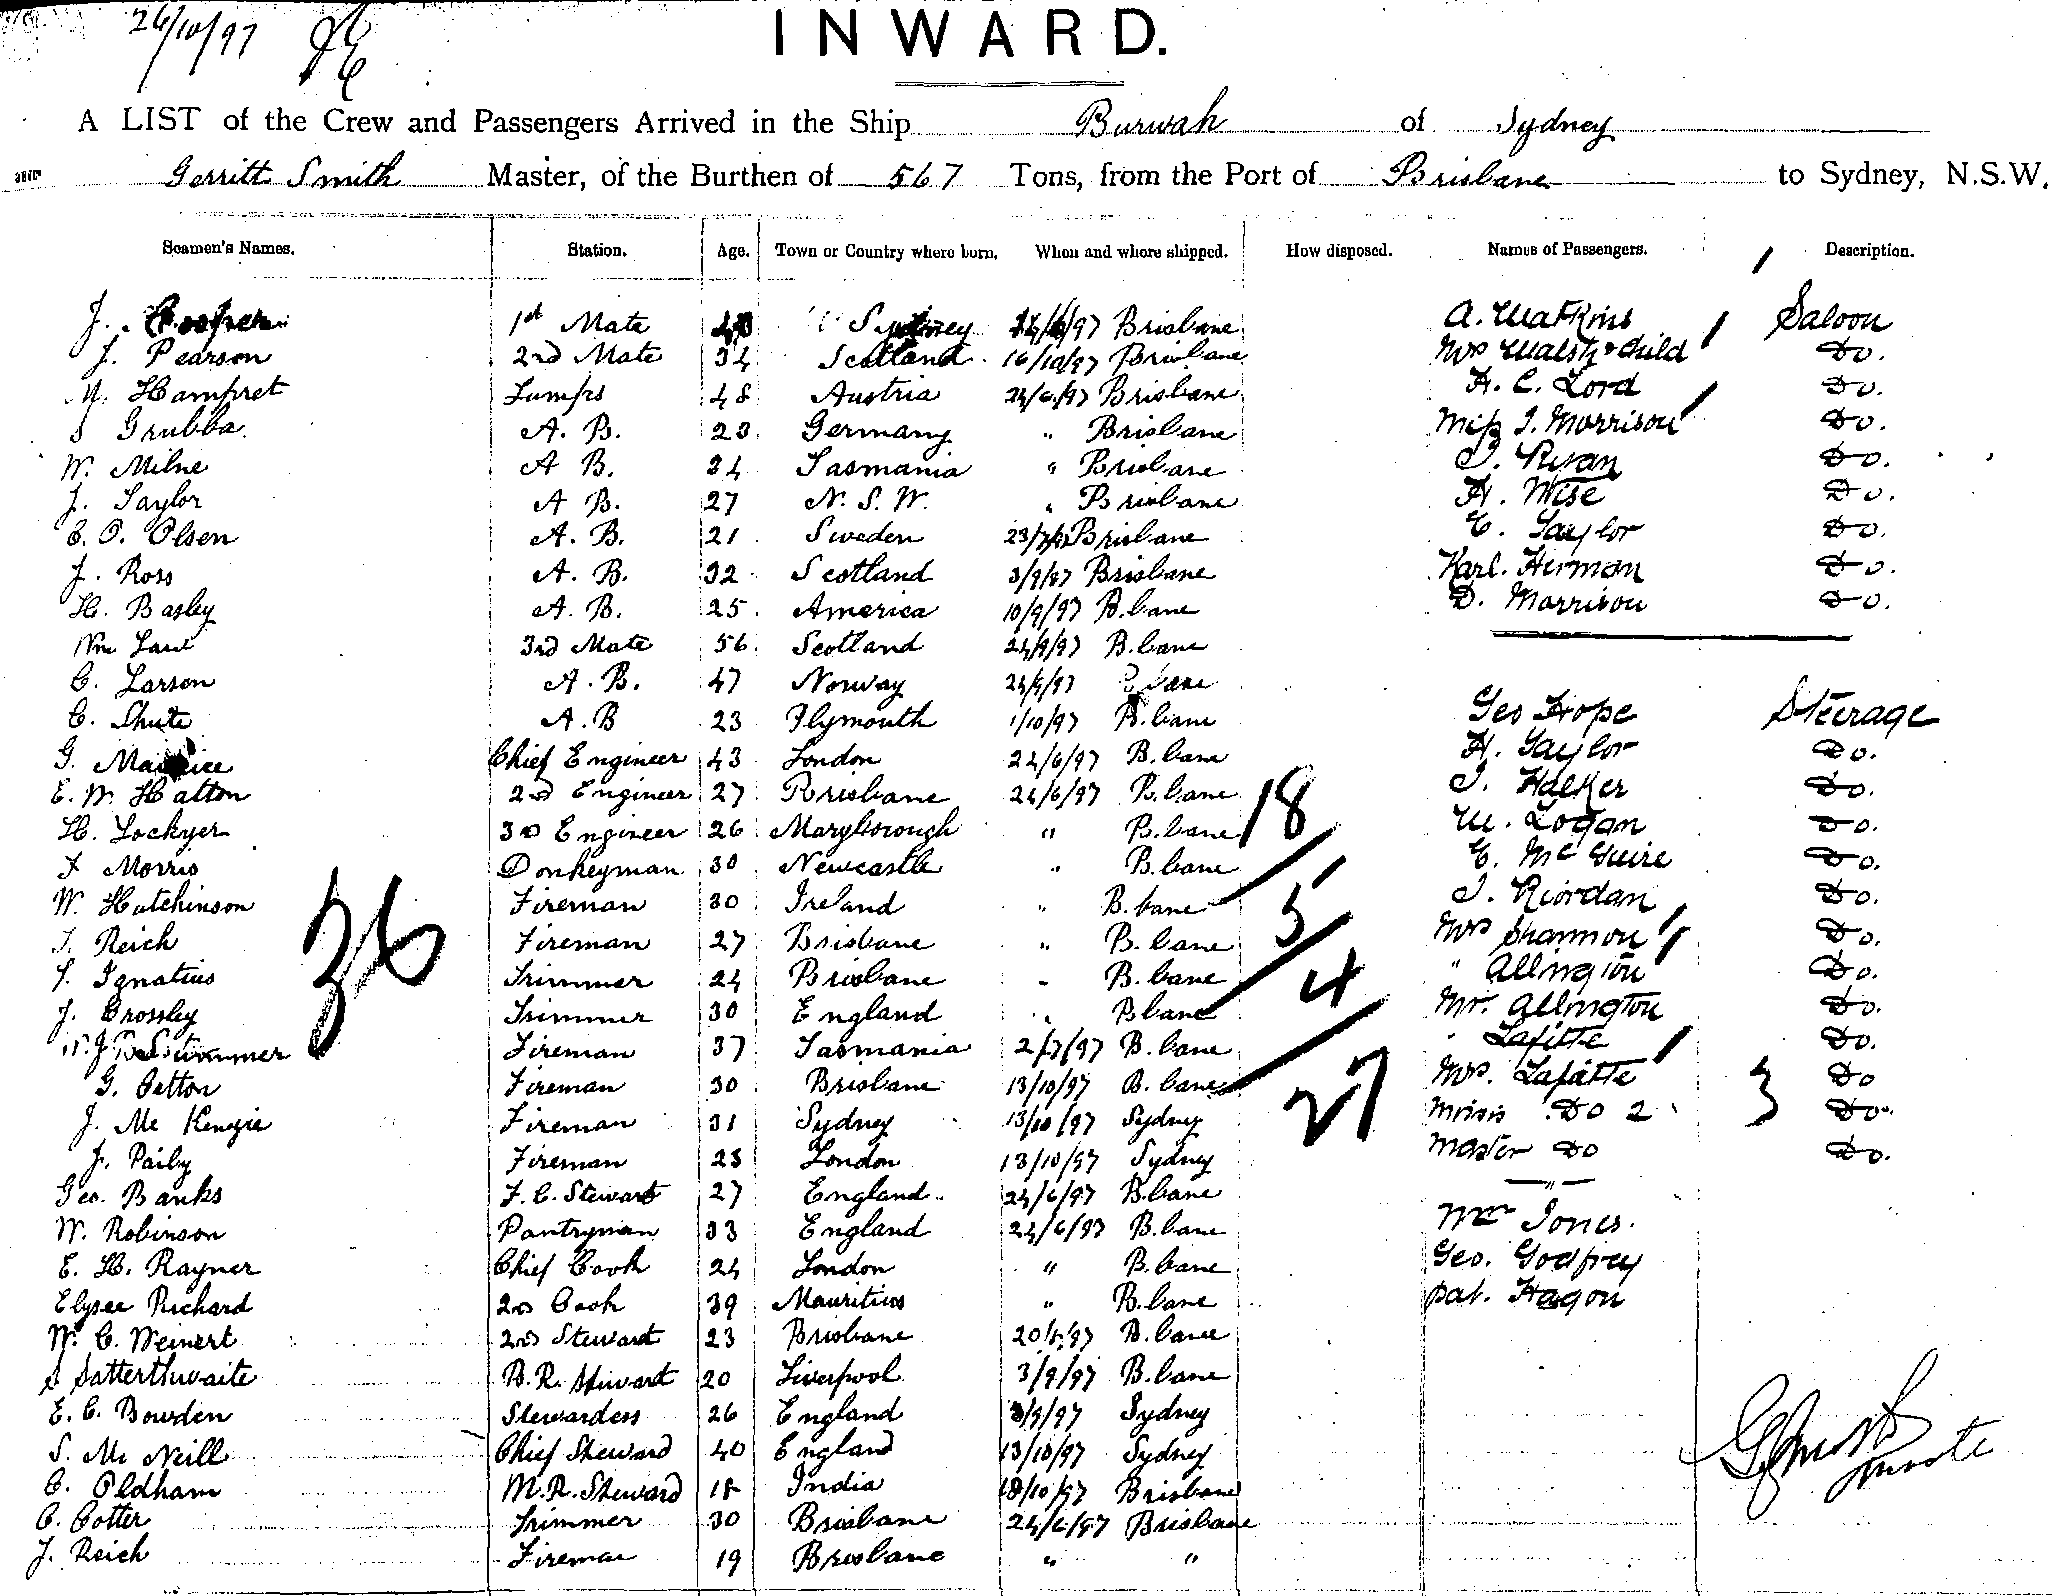 26/10/97
INWARD.
A LIST of the Crew and Passengers Arrived in the Ship Burwah of Sydney
Gerritt Smith Master, of the Burthen of 567 Tons, from the Port of Brisbane to Sydney, N.S.W.
Seamen's Names. Station. Age. Town or Country where born. When and where shipped. How disposed. Names of Passengers. Description.
J. Cooper 1st Mate Sydney Brisbane A. Watkins Saloon
J. Pearson 2nd Mate 34 Scotland 16/10/97 Brisbane Mrs Walsh & Child Do.
M. Hampret Lamps 48 Austria 24/6/97 Brisbane H. C. Lord Do.
Grubba A. B. 23 Germany " Brisbane Miss J. Morrison Do.
W. Milne A B. 34 Tasmania " Brisbane Do.
J. Taylor A B. 27 N. S. W. " Brisbane H. Wise Do.
E. O. Olsen A. B. 21 Sweden Brisbane E. Taylor Do.
J. Ross A. B. 32 Scotland 3/9/97 Brisbane Karl. Herman Do.
H. Basley A. B. 25 America 10/9/97 B.bane D. Morrison Do.
Wm Law 3rd Mate 56 Scotland 24/9/97 B.bane
C. Larson A. B. 47 Norway 24/9/97 B.bane
C. Shute A. B 23 Plymouth 1/10/97 B.bane Geo Hope Steerage
G. Maurice Chief Engineer 43 London 24/6/97 B.bane H. Taylor Do.
E. W. Hatton 2nd Engineer 27 Brisbane 24/6/97 B.bane J. Halker Do.
H. Lockyer 3rd Engineer 26 Maryborough " B.bane 18 W. Logan Do.
F Morris Donkeyman 30 Newcastle " B.bane E. McGuire Do.
W. Hutchinson Fireman 30 Ireland " B.bane J. Riordan Do.
36
J. Reich Fireman 27 Brisbane " B.bane 5 Mrs Shannon Do.
Ignatius Trimmer 24 Brisbane " B.bane 4 " Allington Do.
J. Crossley Trimmer 30 England " B.bane Mr. Allington Do.
Fireman 37 Tasmania 2/7/97 B.bane " Lafitte Do.
G. Cetton Fireman 30 Brisbane 13/10/97 B.bane 27 Mrs. Lafitte Do
J. McKenzie Fireman 31 Sydney 13/10/97 Sydney Misses Do 2 3 Do.
J. Paily Fireman 23 London 13/10/97 Sydney Master Do Do.
Geo. Banks F. C. Stewart 27 England 24/6/97 B.bane
W. Robinson Pantryman 33 England 24/6/97 B.bane Mr Jones.
E. H. Rayner Chief Cook 24 London " B.bane Geo. Godfrey
Elysee Richard 2nd Cook 39 Mauritius " B.bane Pat. Hagon
W. C. Weinert 2nd Stewart 23 Brisbane B.bane
S Satterthwaite B. R. Stewart 20 Liverpool 3/9/97 B.bane
E. C. Bowden Stewardess 26 England 3/9/97 Sydney
S. McNeill Chief Steward 40 England 13/10/97 Sydney
C. Oldham M.R. Steward 18 India 18/10/97 Brisbane
C. Cotter Trimmer 30 Brisbane 24/6/97 Brisbane
J. Reich Fireman 19 Brisbane " "